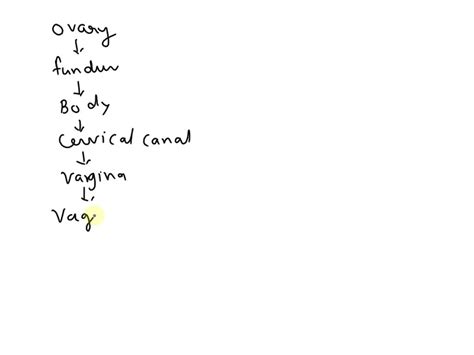 Ovary
↓
fundus
↓
Body
↓
Cervical canal
↓
Vargina
↓
Vag